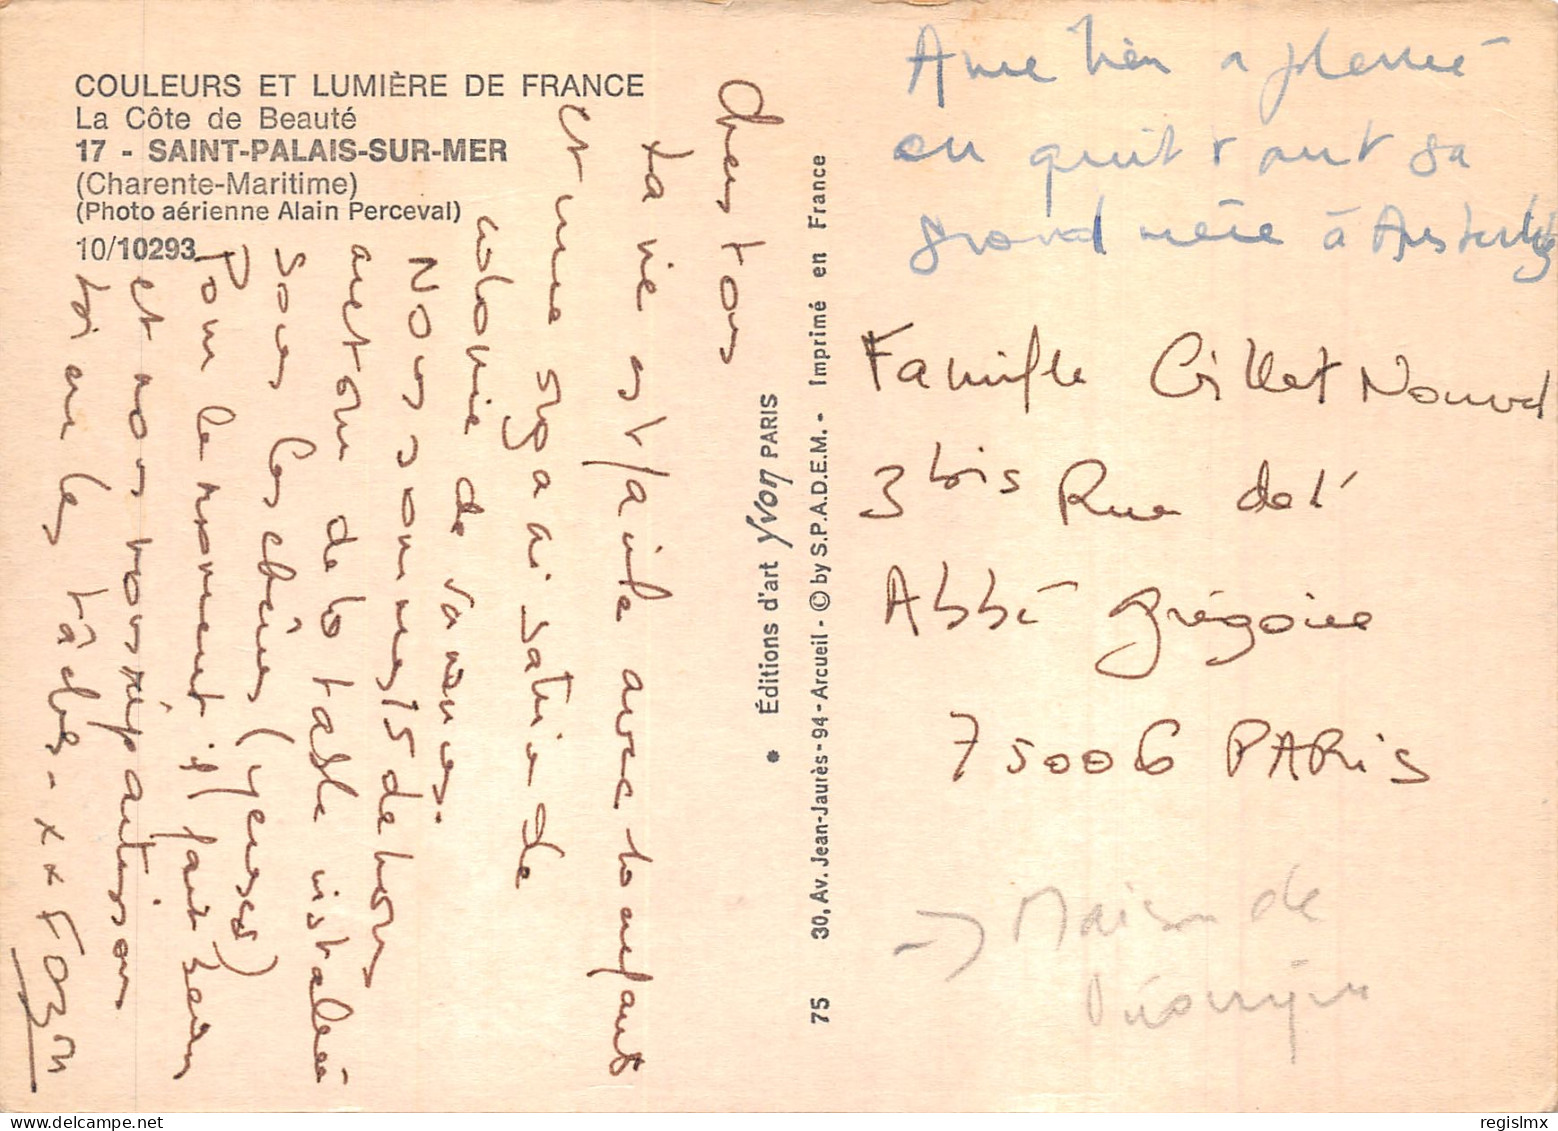 COULEURS ET LUMIÈRE DE FRANCE
La Côte de Beauté
17 - SAINT-PALAIS-SUR-MER
(Charente-Maritime)
(Photo aérienne Alain Perceval)
10/10293
Chers tous
La vie est facile avec 10 enfants
et une organisation de
colonie de vacances.
Nous sommes 15 debous
autour de la table installée
sous les chênes (yeuses)
Pour le moment il fait beau
et nous nous répartissons
les tâches - xx
Éditions d'art Yvon PARIS
75 30, Av. Jean-Jaurès - 94 - Arcueil - © by S.P.A.D.E.M. - Imprimé en France
a pleuré
en quittant sa
grand mère à Austerlitz
Famille Gillet
3 bis Rue de l'
Abbé Grégoire
75006 PARIS
→ Maison de